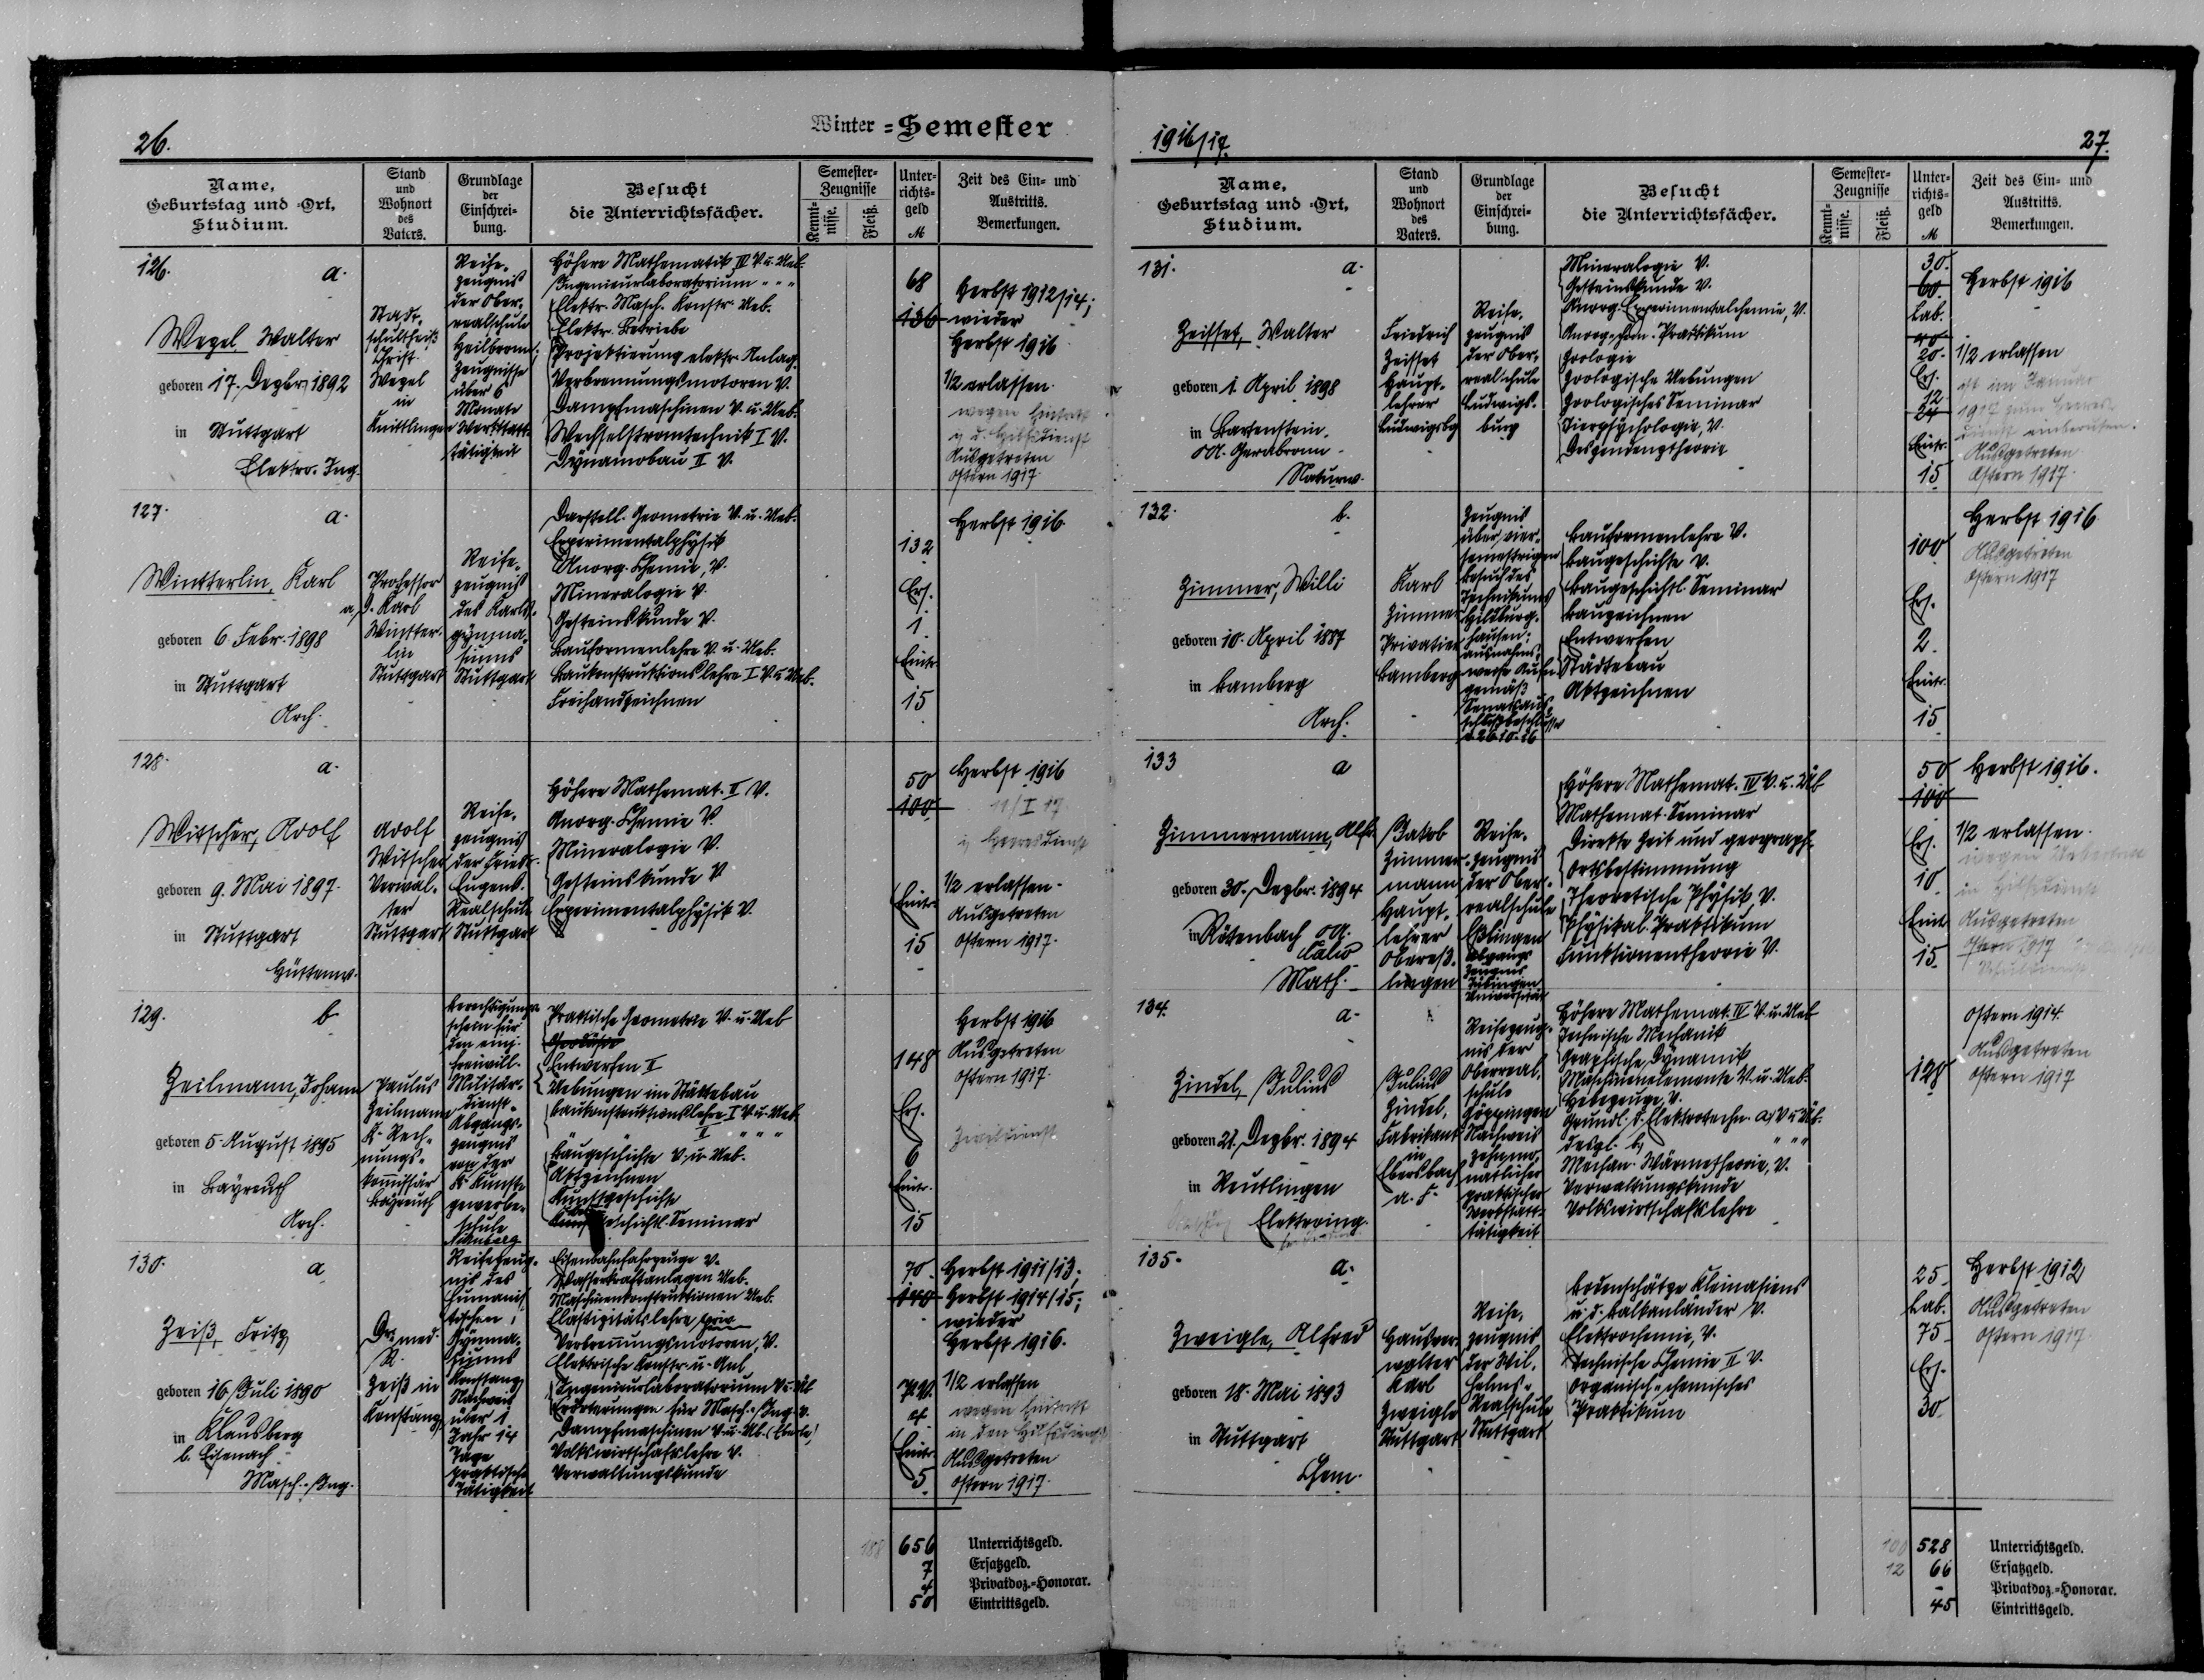 26.
Winter = Semester
Name,
Geburtstag und -Ort,
Studium.
Stand
und
Wohnort
des
Vaters.
Grundlage
der
Einschrei-
bung.
Besucht
die Unterrichtsfächer.
Semester-
Zeugnisse
Kennt-
nisse.
Fleiß.
Unter-
richts-
geld
M
Zeit des Ein- und
Austritts.
Bemerkungen.
126.
a.
Wezel Walter
geboren 17. Dezbr. 1892
in Stuttgart
Elektro. Ing.
Stadt-
schultheiß
Christ.
Wezel
in
Knittlingen
Reife-
zeugnis
der Ober-
realschule
Heilbronn;
Zeugnisse
über 6
Monate
Werkstatt-
tätigkeit
Höhere Mathematik IV V. u. Ueb.
Ingenieurlaboratorium " " "
Elektr. Masch. Konstr. Ueb.
Elektr. Betriebe
Projektierung elektr. Anlag.
Verbrennungsmotoren V.
Dampfmaschinen V. u. Ueb.
Wechselstromtechnik I V.
Dynamobau II V.
68
136
Herbst 1912/14;
wieder
Herbst 1916
1/2 erlassen
wegen Eintritt
i. d. Hilfsdienst
Ausgetreten
Ostern 1917.
127.
a.
Wintterlin, Karl
geboren 6. Febr. 1898
in Stuttgart
Arch.
Professor
Karl
Wintter-
lin
Stuttgart
Reife-
zeugnis
des Karls-
gymna-
siums
Stuttgart
Darstell. Geometrie V. u. Ueb.
Experimentalphysik
Anorg. Chemie, V.
Mineralogie V.
Gesteinskunde V.
Bauformenlehre V. u. Ueb.
Baukonstruktionslehre I V. u. Ueb.
Freihandzeichnen
132
Ers.
1.
Eintr.
15
Herbst 1916
128.
a.
Witscher, Adolf
geboren 9. Mai 1897.
in Stuttgart
Hüttenw.
Adolf
Witscher
Verwal-
ter
Stuttgart
Reife-
zeugnis
der Friedr.
Eugens-
Realschule
Stuttgart
Höhere Mathemat. II V.
Anorg. Chemie V.
Mineralogie V.
Gesteinskunde V
Experimentalphysik V.
50
100
Eintr.
15
Herbst 1916
11/I 17
z. Heeresdienst
1/2 erlassen.
Ausgetreten
Ostern 1917.
129.
b
Zeilmann, Johann
geboren 5. August 1895
in Bayreuth
Arch.
Paulus
Zeilmann
K. Rech-
nungs-
kommissär
Bayreuth
Berechtigungs-
schein für
den einj.
freiwill.
Militär-
dienst.
Abgangs-
zeugnis
von der
K. Kunst-
gewerbe-
schule
Nürnberg
Praktische Geometrie V. u. Ueb
Entwerfen II
Uebungen im Städtebau
Baukonstruktionslehre I V. u. Ueb.
" II " " "
Baugeschichte V. u. Ueb.
Aktzeichnen
Kunstgeschichte
Kunstgeschichtl. Seminar
148
Ers.
6
Eintr.
15
Herbst 1916
Ausgetreten
Ostern 1917.
Zivildienst
130.
a
Zeiß, Fritz
geboren 16. Juli 1890
in Klausberg
b. Eisenach
Masch.-Ing.
Dr. med.
R.
Zeiß in
Konstanz
Reifezeug-
nis des
humanis-
tischen
Gymna-
siums
Konstanz
Nachweis
über 1
Jahr 14
Tage
praktische
Tätigkeit
Eisenbahnfahrzeuge V.
Wasserkraftanlagen Ueb.
Maschinenkonstruktionen Ueb.
Elastizitätslehre
Verbrennungsmotoren, V.
Elektrische Konstr. u. Anl.
Ingenieurlaboratorium V. u. Üb
Erörterungen für Masch.-Ing. V.
Dampfmaschinen V. u. Üb. (Eberle)
Volkswirtschaftslehre V.
Verwaltungskunde
70
140
4
Eintr.
5
Herbst 1911/13;
Herbst 1914/15;
wieder
Herbst 1916.
1/2 erlassen
wegen Eintritt
in den Hilfsdienst
Ausgetreten
Ostern 1917.
188
656 Unterrichtsgeld.
7 Ersatzgeld.
4 Privatdoz.-Honorar.
50 Eintrittsgeld.
1916/17.
27.
Name,
Geburtstag und -Ort,
Studium.
Stand
und
Wohnort
des
Vaters.
Grundlage
der
Einschrei-
bung.
Besucht
die Unterrichtsfächer.
Semester-
Zeugnisse
Kennt-
nisse.
Fleiß.
Unter-
richts-
geld
M
Zeit des Ein- und
Austritts.
Bemerkungen.
131.
a.
Zeisset, Walter
geboren 1. April 1898
in Bartenstein.
OA. Gerabronn
Naturw.
Friedrich
Zeisset
Haupt-
lehrer
Ludwigsbg
Reife-
zeugnis
der Ober-
realschule
Ludwigs-
burg
Mineralogie V.
Gesteinskunde V.
Anorg. Experimentalchemie, V.
Anorg.-chem. Praktikum
Zoologie
Zoologische Uebungen
Zoologisches Seminar
Tierpsychologie, V.
Deszendenztheorie
30.
60.
Lab.
20.
Ers.
12
24
Eintr.
15
Herbst 1916
1/2 erlassen
ist im Januar
1917 zum Heeres-
dienst einberufen.
Ausgetreten
Ostern 1917.
132.
b.
Zimmer, Willi
geboren 10. April 1887
in Bamberg
Arch.
Karl
Zimmer
Privatier
Bamberg
Zeugnis
über vier-
semestrigen
Besuch des
Technikums
Hildburg-
hausen;
ausnahms-
weise Aufn.
gemäß
Senatsaus-
schußbeschlusses
v. 26.10.16
Bauformenlehre V.
Baugeschichte V.
Baugeschichtl. Seminar
Bauzeichnen
Entwerfen
Städtebau
Aktzeichnen
100
Ers.
2.
Eintr.
15
Herbst 1916
Ausgetreten
Ostern 1917
133
a
Zimmermann, Alfr.
geboren 30. Dezbr. 1894
in Rötenbach OA.
Calw
Math.
Jakob
Zimmer-
mann
Haupt-
lehrer
Obereß-
lingen
Reife-
zeugnis
der Ober-
realschule
Eßlingen
Abgangs
Zeugnis
Tübingen
Universität
Höhere Mathemat. IV V. u. Üb
Mathemat. Seminar
Direkte Zeit und geograph.
Ortsbestimmung
Theoretische Physik, V.
Physikal. Praktikum
Funktionentheorie V.
50
100
Ers.
10
Eintr.
15
Herbst 1916.
1/2 erlassen.
in Hilfsdienst
Ausgetreten
Ostern 1917
134.
a.
Zindel, Julius
geboren 21. Dezbr. 1894
in Reutlingen
Elektroing.
Julius
Zindel,
Fabrikant
in
Ebersbach
a. F.
Reifezeug-
nis der
Oberreal-
schule
Göppingen
Nachweis
zehnmo-
natlicher
praktischer
Werkstatt-
tätigkeit
Höhere Mathemat. IV V. u. Ueb
Technische Mechanik
Graphische Dynamik
Maschinenelemente V. u. Ueb.
Hebezeuge, V.
Grundl. d. Elektrotechn. a) V. u. Üb.
desgl. b) " " "
Mechan. Wärmetheorie, V.
Verwaltungskunde
Volkswirtschaftslehre
128
Ostern 1914
Ausgetreten
Ostern 1917
135.
a.
Zweigle, Alfred
geboren 18. Mai 1893
in Stuttgart
Chem.
Hausver-
walter
Karl
Zweigle
Stuttgart
Reife-
zeugnis
der Wil-
helms-
Realschule
Stuttgart
Bodenschätze Kleinasiens
u. d. Balkanländer V.
Elektrochemie, V.
Technische Chemie II V.
Organisch-chemisches
Praktikum
25.
Lab.
75
Ers.
30
Herbst 1912
Ausgetreten
Ostern 1917
100
528 Unterrichtsgeld.
12
66 Ersatzgeld.
- Privatdoz.-Honorar.
45 Eintrittsgeld.